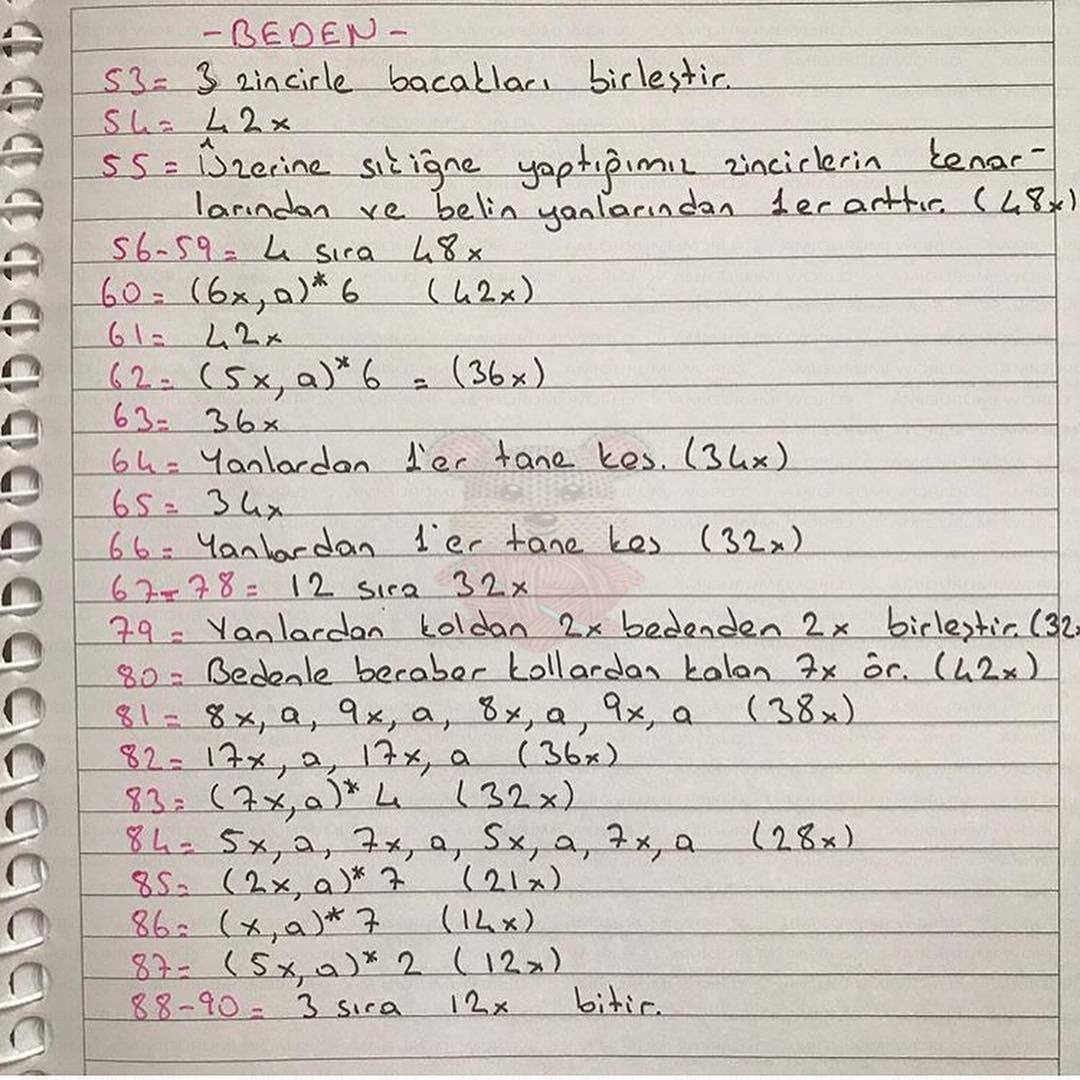 -BEDEN-
53= 3 zincirle bacakları birleştir.
54= 42x
55= Üzerine sıkiğne yaptığımız zincirlerin kenar-
larından ve belin yanlarından 1er arttır. (48x)
56-59= 4 sıra 48x
60= (6x,a)*6 (42x)
61= 42x
62= (5x,a)*6 = (36x)
63= 36x
64= Yanlardan 1'er tane kes. (34x)
65= 34x
66= Yanlardan 1'er tane kes (32x)
67-78= 12 sıra 32x
79= Yanlardan koldan 2x bedenden 2x birleştir. (32x
80= Bedenle beraber kollardan kalan 7x ör. (42x)
81= 8x, a, 9x, a, 8x, a, 9x, a (38x)
82= 17x, a, 17x, a (36x)
83= (7x,a)*4 (32x)
84= 5x, a, 7x, a, 5x, a, 7x, a (28x)
85= (2x,a)*7 (21x)
86= (x,a)*7 (14x)
87= (5x,a)*2 (12x)
88-90= 3 sıra 12x bitir.